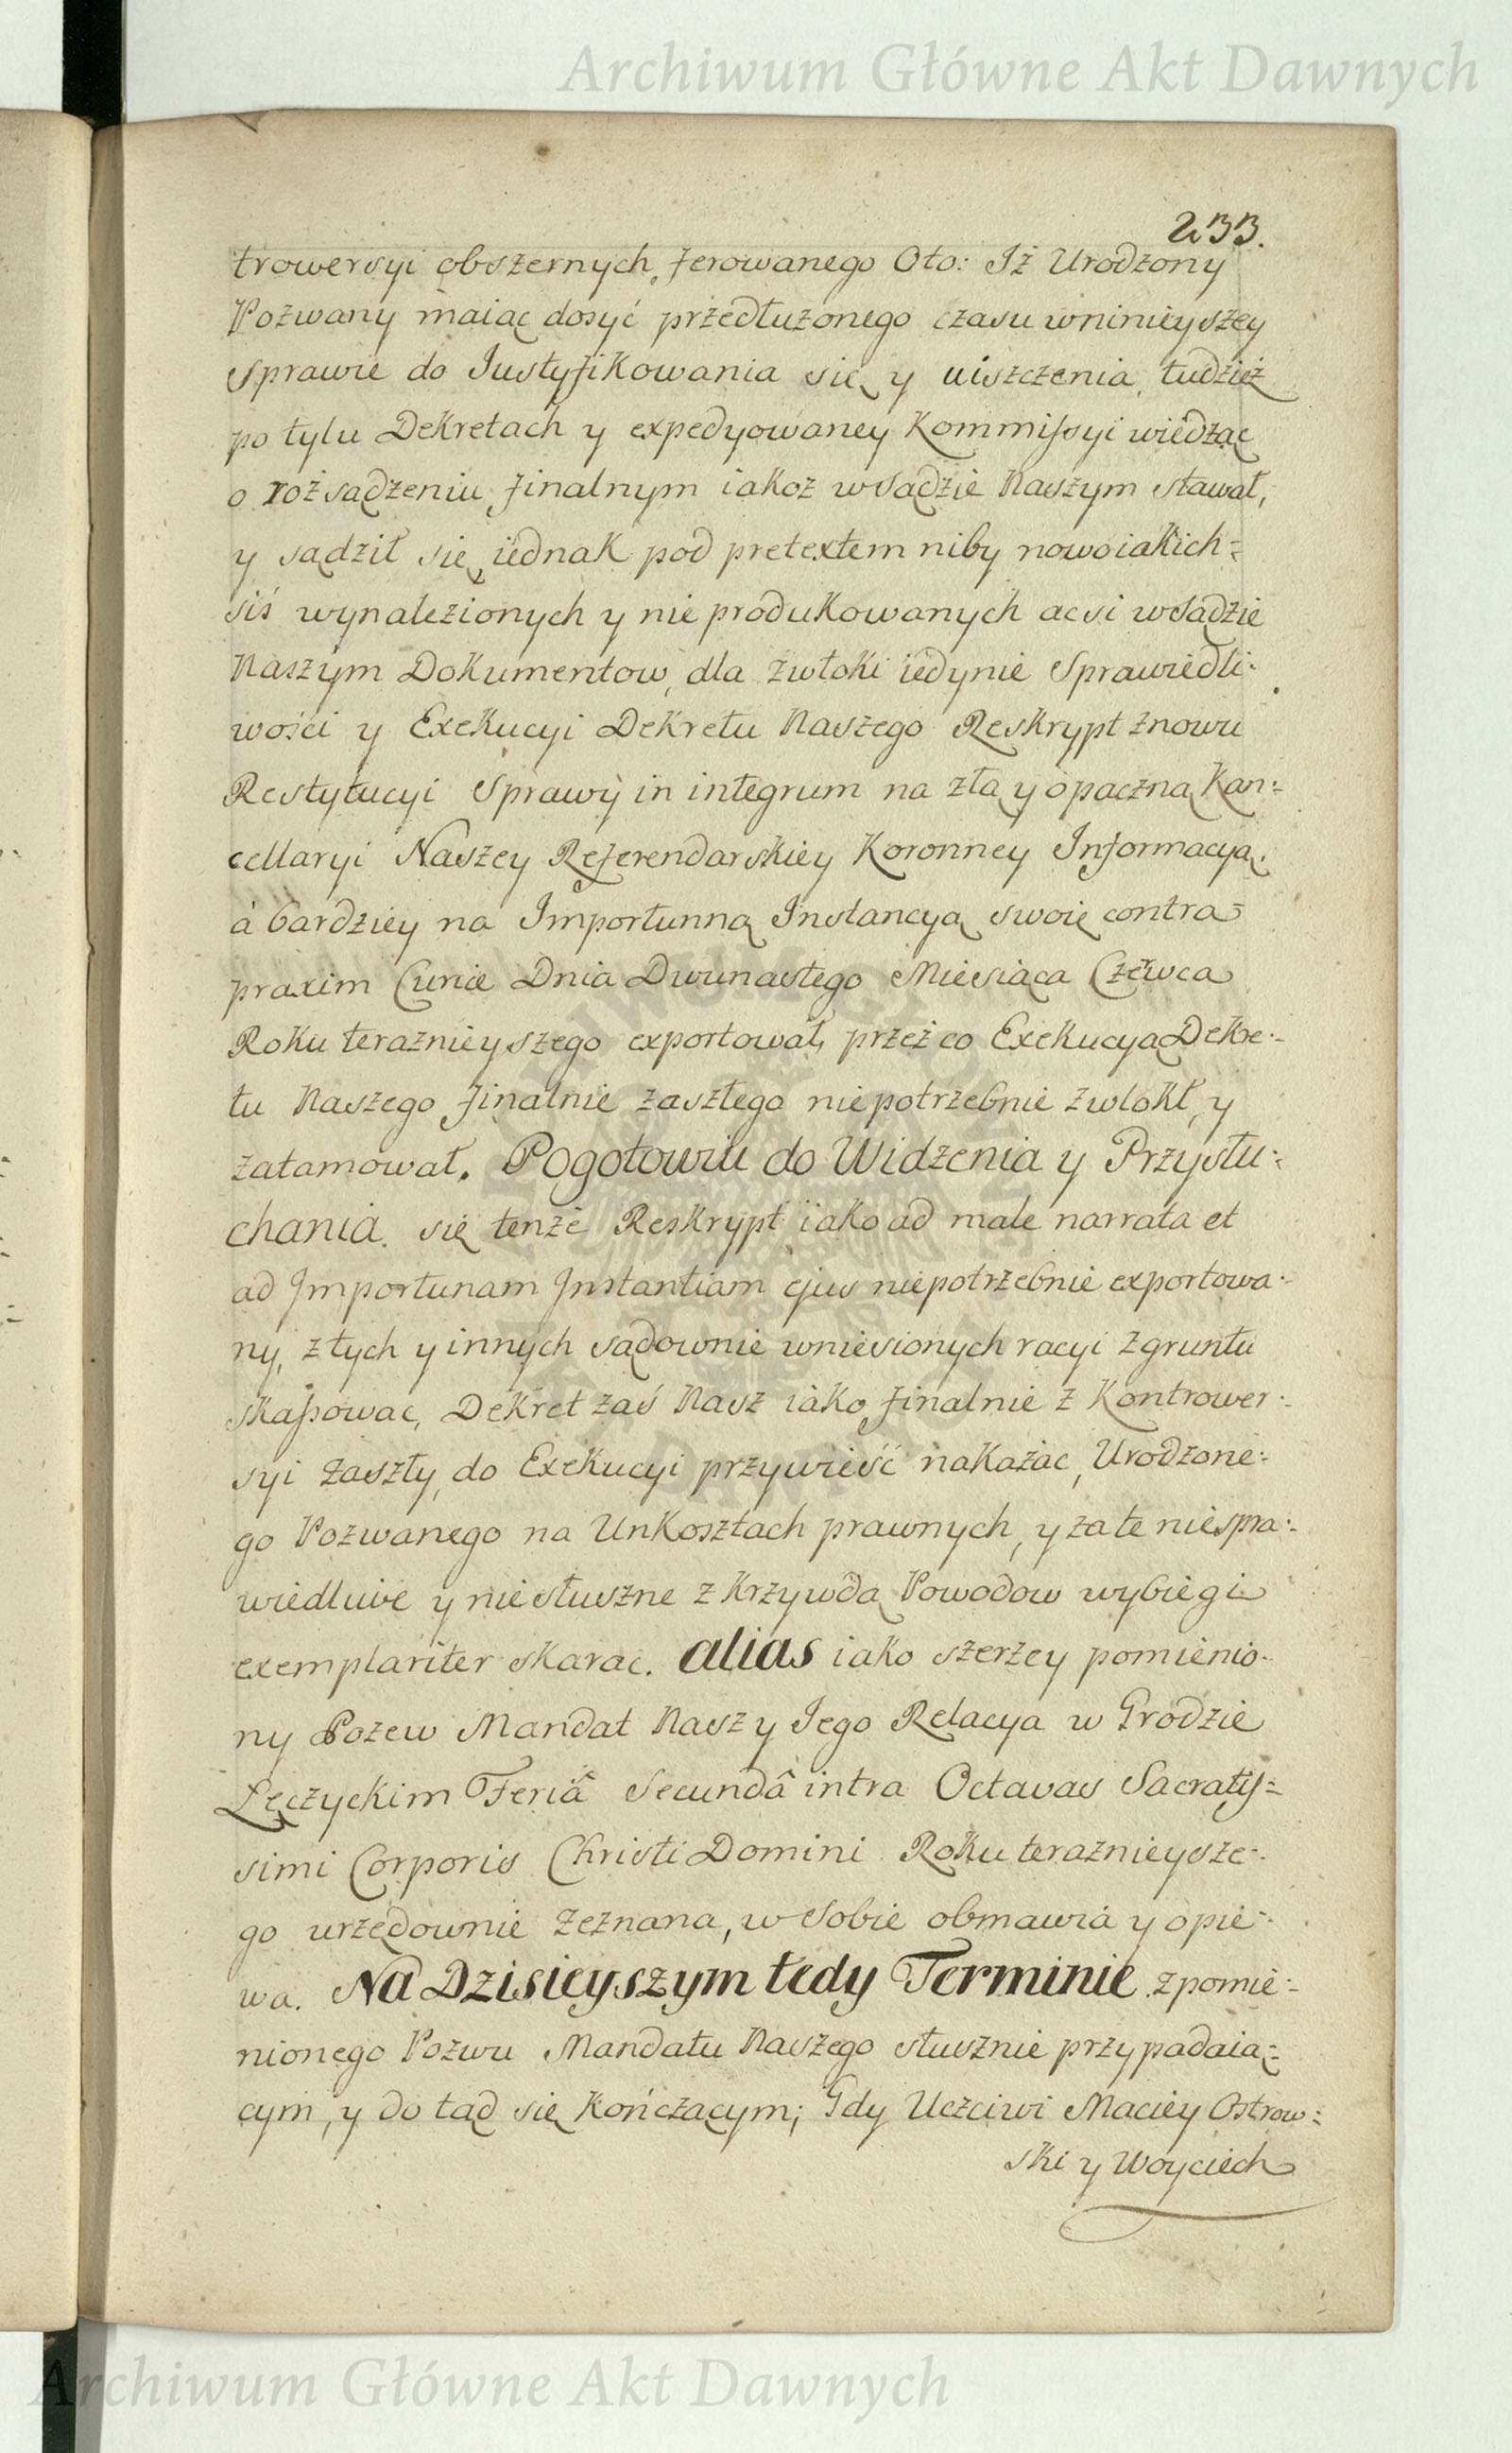 Archiwum Główne Akt Dawnych
233.
trowersyi obszernych ferowanego Oto: Iż Urodzony
Pozwany maiąc dosyć przedłużonego czasu wninieyszey
Sprawie do Justyfikowania się y uiszczenia, tudzież
po tylu Dekretach y expedyowaney Kommissyi wiedząc
o rozsądzeniu finalnym iakoż wsądzie Naszym stawał,
y sądził się iednak pod pretextem niby nowo iakich=
siś wynalezionych y nie produkowanych acsi wsądzie
Naszym Dokumentow, dla zwłoki iedynie Sprawiedli:
wości y Exekucyi Dekretu Naszego Reskrypt znowu
Restytucyi Sprawy in integrum na złą y opaczną Kan:=
cellaryi Naszey Referendarskiey Koronney Informacyą,
à bardziey na Importunną Instancyą swoię contra
praxim Curiæ Dnia Dwunastego Miesiąca Czerwca
Roku teraznieyszego exportował, przez co Exekucyą Dekre:-
tu Naszego finalnie zaszłego niepotrzebnie zwlokł, y
zatamował. Pogotowiu do Widzenia y Przysłu:
chania się tenże Reskrypt iako ad male narrata et
ad Importunam Instantiam ejus niepotrzebnie exportowa:-
ny, z tych y innych sądownie wniesionych racyi zgruntu
skassować, Dekret zaś Nasz iako finalnie z Kontrower:
syi zaszły, do Exekucyi przywieść nakazać, Urodzone:
go Pozwanego na Unkosztach prawnych, y za te niespra:-
wiedliwe y niesłuszne z Krzywdą Powodow wybiegi
exemplariter skarać. alias iako szerzey pomienio-
ny Pozew Mandat Nasz y Jego Relacya w Grodzie
Łęczyckim Feriâ Secundâ intra Octavas Sacratis=
simi Corporis Christi Domini Roku teraznieysze-
go urzędownie zeznana, w sobie obmawia y opie-
wa. Na Dzisieyszym tedy Terminie z pomie:-
nionego Pozwu Mandatu Naszego słusznie przypadaią:=
cym, y do tąd się kończącym; Gdy Uczciwi Maciey Ostrow:
ski y Woyciech
Archiwum Główne Akt Dawnych